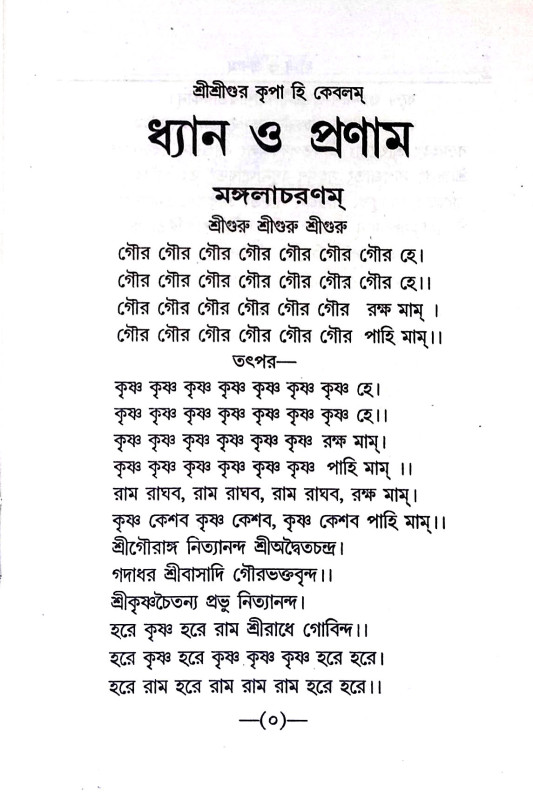 শ্রীশ্রীগুর কৃপা হি কেবলম্
ধ্যান ও প্রণাম
মঙ্গলাচরণম্
শ্রীগুরু শ্রীগুরু শ্রীগুরু
গৌর গৌর গৌর গৌর গৌর গৌর গৌর হে।
গৌর গৌর গৌর গৌর গৌর গৌর গৌর হে।।
গৌর গৌর গৌর গৌর গৌর গৌর রক্ষ মাম্ ।
গৌর গৌর গৌর গৌর গৌর গৌর পাহি মাম্।।
তৎপর—
কৃষ্ণ কৃষ্ণ কৃষ্ণ কৃষ্ণ কৃষ্ণ কৃষ্ণ কৃষ্ণ হে।
কৃষ্ণ কৃষ্ণ কৃষ্ণ কৃষ্ণ কৃষ্ণ কৃষ্ণ কৃষ্ণ হে।।
কৃষ্ণ কৃষ্ণ কৃষ্ণ কৃষ্ণ কৃষ্ণ কৃষ্ণ রক্ষ মাম্।
কৃষ্ণ কৃষ্ণ কৃষ্ণ কৃষ্ণ কৃষ্ণ কৃষ্ণ পাহি মাম্ ।।
রাম রাঘব, রাম রাঘব, রাম রাঘব, রক্ষ মাম্।
কৃষ্ণ কেশব কৃষ্ণ কেশব, কৃষ্ণ কেশব পাহি মাম্।।
শ্রীগৌরাঙ্গ নিত্যানন্দ শ্রীঅদ্বৈতচন্দ্র।
গদাধর শ্রীবাসাদি গৌরভক্তবৃন্দ।।
শ্রীকৃষ্ণচৈতন্য প্রভু নিত্যানন্দ।
হরে কৃষ্ণ হরে রাম শ্রীরাধে গোবিন্দ।।
হরে কৃষ্ণ হরে কৃষ্ণ কৃষ্ণ কৃষ্ণ হরে হরে।
হরে রাম হরে রাম রাম রাম হরে হরে।।
—(০)—